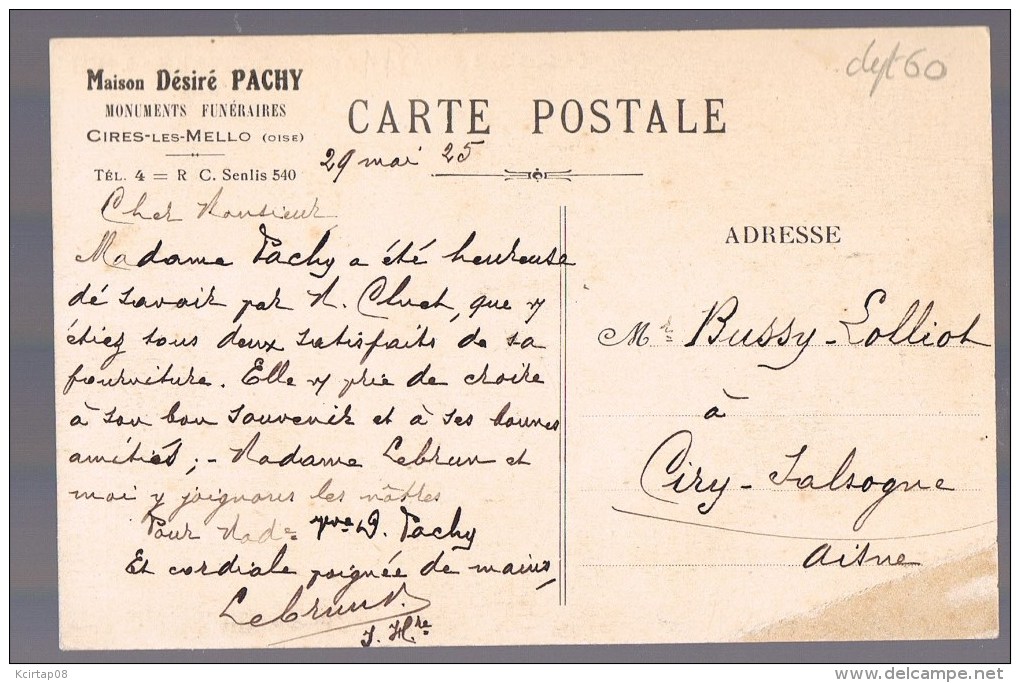 dept 60
Maison Désiré PACHY
MONUMENTS FUNÉRAIRES
CIRES-LES-MELLO (OISE)
TÉL. 4 = R C. Senlis 540
CARTE POSTALE
29 mai 25
Cher Monsieur
Madame Pachy a été heureuse
de savoir par M. Cluet, que v
étiez tous deux satisfaits de sa
fourniture. Elle v prie de croire
à son bon souvenir et à ses bonnes
amitiés ; - Madame Lebrun et
moi y joignons les nôtres
Pour Made Vve D. Pachy
Et cordiale poignée de mains,
Lebrun
ADRESSE
Mr Bussy-Lolliot
à
Ciry-Salsogne
Aisne
Kcirtap08
delcampe.net